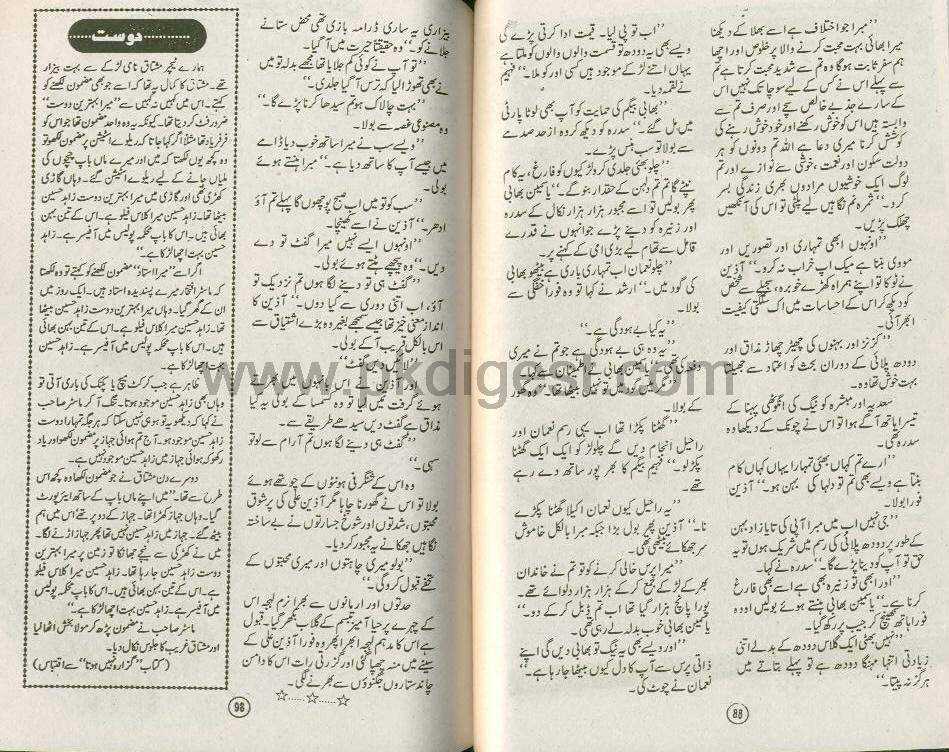 ’’میرا جو اختلاف ہے اسے بھلا کے دیکھنا
میرا بھائی بہت محبت کرنے والا پر خلوص اور اچھا
ہم سفر ثابت ہوگا وہ تم سے شدید محبت کرتا ہے تم
سے پہلے اس نے کس کے لیے سوچا تک نہیں اس
کے سارے جذبے خالص سچے اور صرف تم سے
وابستہ ہیں اس کو خوش رکھنے اور خود خوش رہنے کی
کوشش کرنا میری دعا ہے اللہ تم دونوں کو ہر
دولت سکون اور نعمت، خوشی سے نوازے اور تم
لوگ ایک خوشیوں مرادوں بھری زندگی بسر
کرو۔‘‘ ثمرہ غم نگاہیں لیے پلٹی تو اس کی آنکھیں
چھلک پڑیں۔
’’اونہوں ابھی تمہاری اور تصویریں اور
مووی بننا ہے میک اپ خراب نہ کرو۔‘‘ آذین
نے ٹوکا تو اپنے ہمراہ کھڑے خوبرو، سجیلے سے شخص
کو دیکھ کر اس کے احساسات میں اک سلگتی کیفیت
ابھر آئی۔
’’کزنز اور بہنوں کی چھیڑ چھاڑ مذاق اور
دودھ پلائی کے دوران بحث کو اعتماد سے جھیلتا
بہت خوش تھا وہ۔
سعدیہ اور مبشرہ کو نیگ کی انگوٹھی پہنا کے
تیسرا ہاتھ آگے ہوا تو اس نے چونک کے دیکھا وہ
سدرہ تھی۔
’’ارے تم کہاں بھئی تمہارا یہاں کہاں کام
بنتا ہے ویسے بھی تم تو دلہا کی بہن ہو۔‘‘ آذین
فوراً بولا۔
’’جی نہیں اب میں میرا آپی کی تایا زاد بہن
کے طور پر دودھ پلائی کی رسم میں شریک ہوں تو یہ
حق تو آپ کو دینا پڑے گا۔‘‘ سدرہ نے کہا۔
’’اور ابھی تو زنیرہ بھی ہے اسے بھی فارغ
کرنا ہے۔‘‘ یاسمین بھابی ہنستے ہوئے بولیں اور وہ
فوراً ہاتھ کھینچ کر جیب پر رکھ گیا۔
’’نہیں بھئی ایک گلاس دودھ کے بدلے اتنی
زیادتی انتہا مہنگا دودھ ہے تو پہلے بتاتے میں
ہرگز نہ پیتا۔‘‘
’’اب تو پی لیا۔ قیمت ادا کرنی پڑے گی
ویسے بھی یہ دودھ تو قسمت والوں والوں کو ملتا ہے
یہاں اتنے لڑکے موجود ہیں کسی اور کو ملا۔‘‘ فہیم
نے لقمہ دیا۔
’’بھابی بیگم کی حمایت کو آپ بھی لوٹا پارٹی
میں مل گئے۔‘‘ سدرہ کو دیکھ کر وہ از حد صدمے
سے بولا تو سب ہنس پڑے۔
’’چلو بھئی جلدی کرو لڑکیوں کو فارغ، یہ کام
نپٹے گا تم تم دلہن کے حقدار بنو گے۔‘‘ یاسمین بھابی
پھر بولیں تو اسے مجبور ہزار ہزار نکال کے سدرہ
اور زنیرہ کو دینے پڑے جو انہوں نے قدرے
قائل سے تھام لیے بڑی امی کے کہنے پر۔
’’چلو نعمان اب تمہاری باری ہے بیٹھو بھابی
کی گود میں۔‘‘ ارشد نے کہا تو وہ فوراً خفگی سے
بولا۔
’’یہ کیا بے ہودگی ہے۔‘‘
’’یہ وہی بے ہودگی ہے جو تم نے میری
دفعہ کی تھی۔‘‘ یاسمین بھابی نے اطمینان سے
کے بولا۔
’’گھٹنا پکڑا تھا اب یہی رسم نعمان اور
راحیل انجام دیں گے چلو لڑکو ایک ایک گھٹنا
پکڑ لو۔‘‘ فہیم بیگم کا بھر پور ساتھ دے رہے
تھے۔
’’یہ راحیل کیوں نعمان اکیلا گھٹنا پکڑے
نا۔‘‘ آذین پھر بول بڑا جبکہ میرا بالکل خاموش
سر جھکائے بیٹھی تھی۔
’’میرا پرس خالی کرنے کو تو تم نے خاندان
بھر کے لڑکے جمع کر کے ہزار ہزار دلوائے تھے۔
پورا پانچ ہزار گیا تھا اب تم ڈبل کر کے دو۔‘‘
یاسمین بھابی خوب بدلہ لے رہی تھیں۔
’’اور ویسے بھی یہ نیگ تو بھابی دیں گی اپنے
ذاتی پرس سے آپ کا دل کیوں بیٹھا جا رہا ہے۔‘‘
نعمان نے چوٹ کی۔
88
بیزاری یہ ساری ڈرامہ بازی تھی محض ستانے
جلانے کو۔‘‘ وہ حقیقتاً حیرت میں آ گیا۔
’’تو آپ نے کوئی کم جلایا تھا مجھے بدلہ تو میں
نے بھی تھوڑا لیا کہ ترس آ گیا جلدی۔‘‘
’’بہت چالاک ہو تم سیدھا کرنا پڑے گا۔‘‘
وہ مصنوعی غصہ سے بولا۔
’’ویسے سب نے میرا ساتھ خوب دیا ڈرامے
میں جیسے آپ کا ساتھ دیا ہے۔‘‘ میرا ہنستے ہوئے
بولی۔
’’سب کو تو میں اب صبح پوچھوں گا پہلے تم آؤ
ادھر۔‘‘ آذین نے اسے کھینچا۔
’’اونہوں ایسے نہیں میرا گفٹ تو دے
دیں۔‘‘ وہ پیچھے ہٹتے ہوئے بولی۔
’’گفٹ ہی تو دینے لگا ہوں تم نزدیک تو
آؤ، اب اتنی دوری سے کیا دوں۔‘‘ آذین کا
انداز معنی خیز تھا جیسے سمجھے بغیر وہ بڑے اشتیاق سے
اس بالکل قریب آ کے بولی۔
’’لائیں دیں گفٹ۔‘‘
اور آذین نے اس بانہوں میں بھرتے
ہوئے گرفت تنگ لیا تو وہ کسمسا کے بولی یہ کیا
مذاق ہے گفٹ دیں سیدھے طریقے سے۔
’’گفٹ ہی دینے لگا ہوں تم آرام سے لو تو
سہی۔‘‘
وہ اس کے شنگرفی ہونٹوں کے چومتے ہوئے
بولا تو اس نے گھورنا چاہا مگر آذین علی کی پر شوق
محبتوں، شدتوں اور شوخ جسارتوں نے بے ساختہ
نگاہیں جھکانے یہ مجبور کر دیا۔
’’بولو میری چاہتوں اور میری محبتوں کے
تحفے قبول کرو گی۔‘‘
حدتوں اور ارمانوں سے بھرا نرم لہجہ اس
کے چہرے پر حیا آمیز تبسم کے گلاب بکھر گیا۔ قبول
ہے اس کا مدہم لہجہ ابھرا پھر وہ فوراً آذین علی کے
سینے میں منہ چھپا گئی اور گزرتی رات اس کا دامن
چاند ستاروں جگنوؤں سے بھرنے لگی۔
☆......☆......☆
دوست
ہمارے ٹیچر مشتاق نامی لڑکے سے بہت بیزار
تھے۔ مشتاق کا کمال یہ تھا کہ اسے جو بھی مضمون لکھنے کو
کہتے۔ اس میں کہیں نہ کہیں سے ’’میرا بہترین دوست‘‘
ضرور فٹ کر دیتا تھا۔ کیونکہ یہ وہ واحد مضمون تھا جو اس کو
فرفر یاد تھا مثلاً اگر کہا جاتا کہ ریلوے اسٹیشن پر مضمون لکھو تو
وہ کچھ یوں لکھتا کہ میں اور میرے ماں باپ چیچوں کی
ملیاں جانے کے لیے ریلوے اسٹیشن گئے۔ وہاں گاڑی
کھڑی تھی اور گاڑی میں میرا بہترین دوست زاہد حسین
بیٹھا تھا۔ زاہد حسین میرا کلاس فیلو ہے۔ اس کے تین بہن
بھائی ہیں۔ اس کا باپ محکمہ پولیس میں آفیسر ہے۔ زاہد
حسین بہت اچھا لڑکا ہے۔
اگر اسے ’’میرا استاد‘‘ مضمون لکھنے کو کہتے تو وہ لکھتا
کہ ماسٹر افتخار میرے پسندیدہ استاد ہیں۔ ایک روز میں
ان کے گھر گیا۔ وہاں میرا بہترین دوست زاہد حسین بیٹھا
تھا۔ زاہد حسین میرا کلاس فیلو ہے۔ اس کے تین بہن بھائی
ہیں۔ اس کا باپ محکمہ پولیس میں آفیسر ہے۔ زاہد حسین
بہت اچھا لڑکا ہے۔
ظاہر ہے جب کرکٹ میچ یا پکنک کی باری آتی تو
وہاں بھی زاہد حسین موجود ہوتا۔ تنگ آ کر ماسٹر صاحب
نے کہا کہ دیکھو یہ تو ہو ہی نہیں سکتا کہ ہر جگہ تمہارا دوست
زاہد حسین موجود ہو۔ آج تم ہوائی جہاز پر مضمون لکھو اور یاد
رکھو کہ ہوائی جہاز میں زاہد حسین موجود نہیں ہے۔
دوسرے دن مشتاق نے جو مضمون لکھا وہ کچھ اس
طرح سے تھا۔ ’’میں اپنے ماں باپ کے ساتھ ایئر پورٹ
گیا۔ وہاں جہاز کھڑا تھا۔ جہاز کے دو پر تھے اس میں ہم
بیٹھ گئے۔ جہاز میں زاہد حسین نہیں تھا پھر جہاز اڑنے لگا۔
میں نے کھڑکی سے نیچے جھانکا تو زمین پر میرا بہترین
دوست زاہد حسین جا رہا تھا۔ زاہد حسین میرا کلاس فیلو
ہے۔ اس کے تین بہن بھائی ہیں۔ اس کا باپ محکمہ پولیس
میں آفیسر ہے۔ زاہد حسین بہت اچھا لڑکا ہے۔‘‘
ماسٹر صاحب نے مضمون پڑھ کر مولا بخش اٹھا لیا
اور مشتاق غریب کا جلوس نکال دیا۔
(کتاب ’’گزارہ نہیں ہوتا‘‘ سے اقتباس)
98
www.pkdigest.com